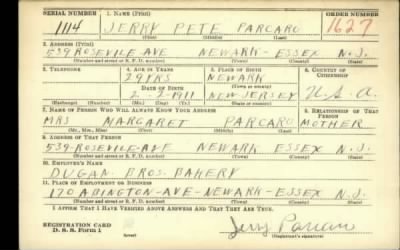 SERIAL NUMBER 1. NAME (Print) ORDER NUMBER
1114 JERRY PETE PARCARO 1627
(First) (Middle) (Last)
2. ADDRESS (Print)
539-ROSEVILE-AVE NEWARK-ESSEX N.J.
(Number and street or R. F. D. number) (Town) (County) (State)
3. TELEPHONE 4. AGE IN YEARS 5. PLACE OF BIRTH 6. COUNTRY OF CITIZENSHIP
29 YRS NEWARK
DATE OF BIRTH (Town or county)
2-2-1911 NEW JERSEY U.S.A
(Exchange) (Number) (Mo.) (Day) (Yr.) (State or country)
7. NAME OF PERSON WHO WILL ALWAYS KNOW YOUR ADDRESS 8. RELATIONSHIP OF THAT PERSON
MRS MARGARET PARCARO MOTHER
(Mr., Mrs., Miss) (First) (Middle) (Last)
9. ADDRESS OF THAT PERSON
539-ROSEVILE-AVE NEWARK ESSEX N.J.
(Number and street or R. F. D. number) (Town) (County) (State)
10. EMPLOYER'S NAME
DUGAN BROS. BAKERY
11. PLACE OF EMPLOYMENT OR BUSINESS
170 ABINGTON-AVE-NEWARK-ESSEX N.J.
(Number and street or R. F. D. number) (Town) (County) (State)
I AFFIRM THAT I HAVE VERIFIED ABOVE ANSWERS AND THAT THEY ARE TRUE.
REGISTRATION CARD
D. S. S. Form 1
Jerry Parcaro
(Registrant's signature)